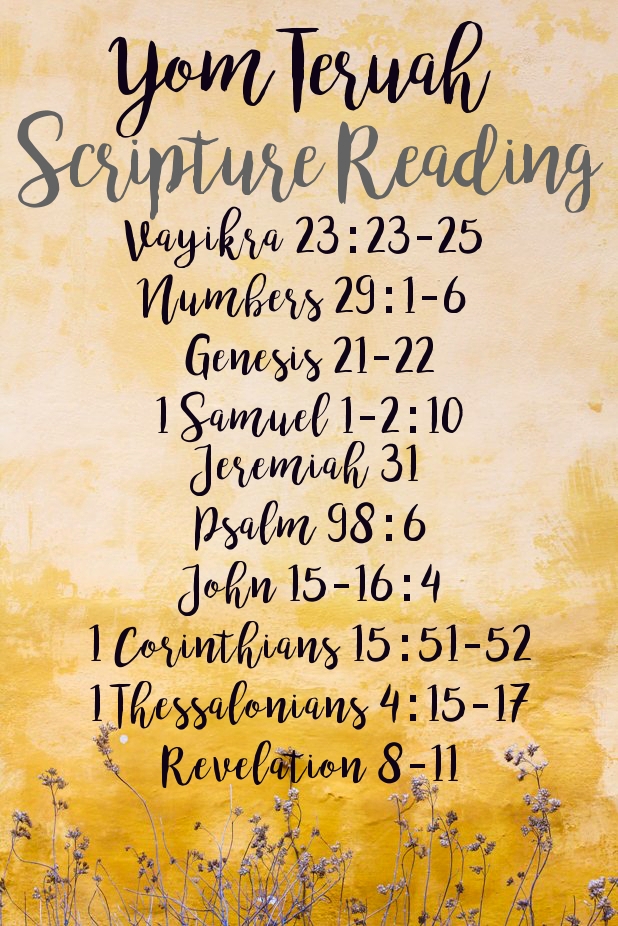 Yom Teruah
Scripture Reading
Vayikra 23:23-25
Numbers 29:1-6
Genesis 21-22
1 Samuel 1-2:10
Jeremiah 31
Psalm 98:6
John 15-16:4
1 Corinthians 15:51-52
1 Thessalonians 4:15-17
Revelation 8-11